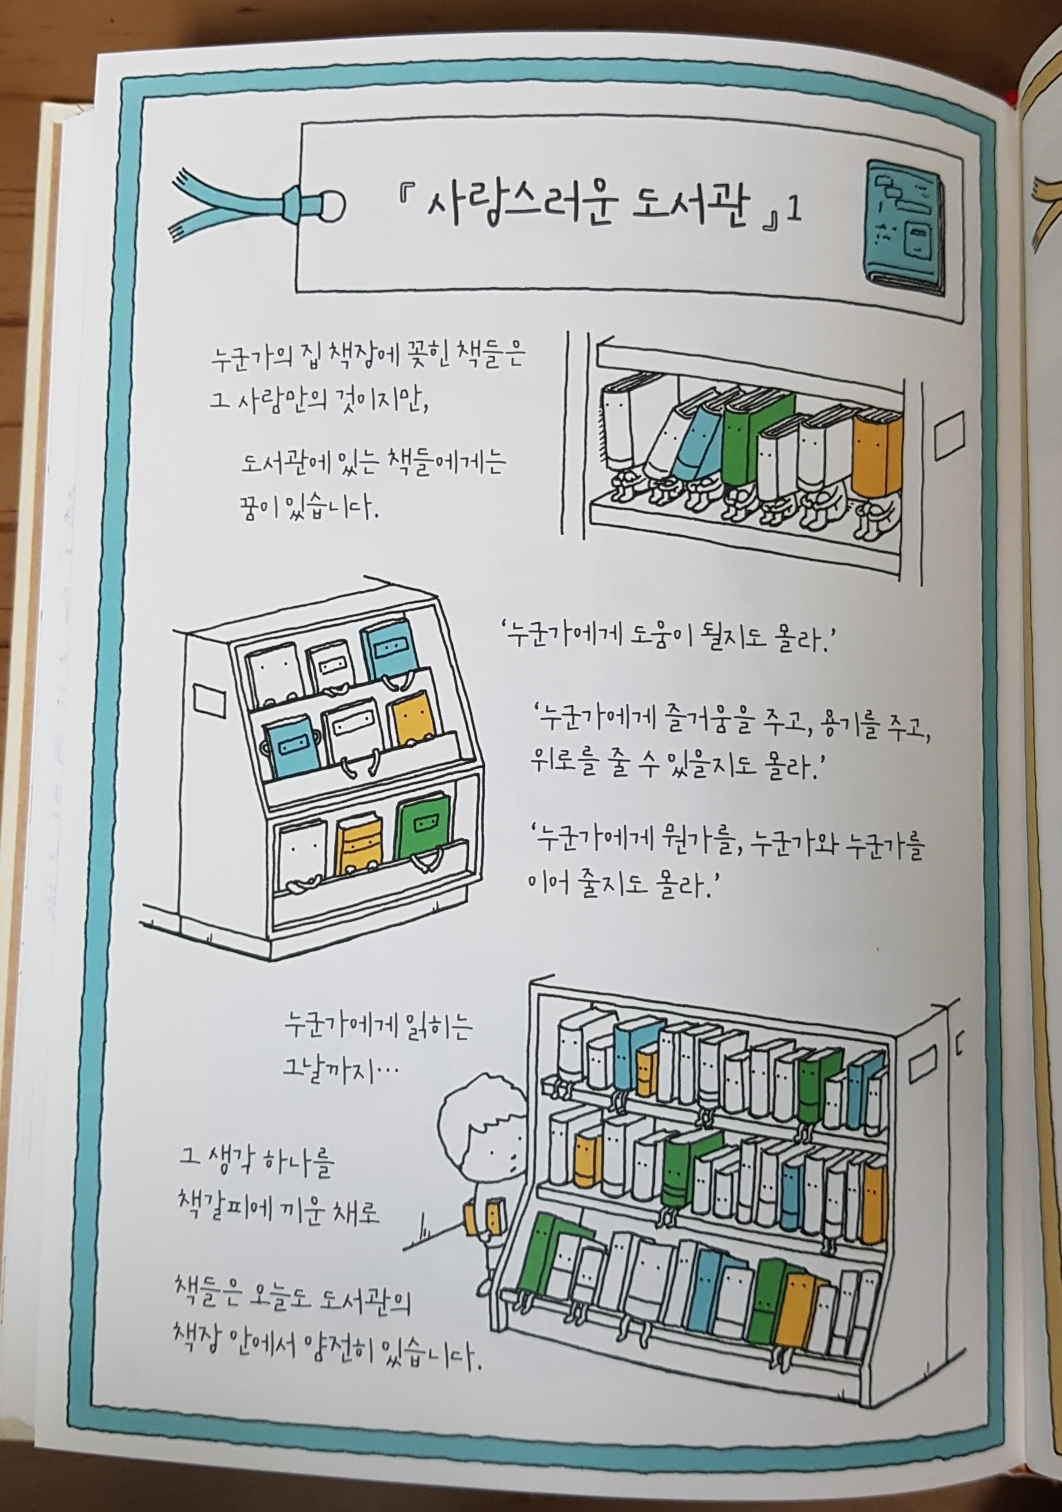 『사랑스러운 도서관』1
누군가의 집 책장에 꽂힌 책들은
그 사람만의 것이지만,
도서관에 있는 책들에게는
꿈이 있습니다.
‘누군가에게 도움이 될지도 몰라.’
‘누군가에게 즐거움을 주고, 용기를 주고,
위로를 줄 수 있을지도 몰라.’
‘누군가에게 뭔가를, 누군가와 누군가를
이어 줄지도 몰라.’
누군가에게 읽히는
그날까지…
그 생각 하나를
책갈피에 끼운 채로
책들은 오늘도 도서관의
책장 안에서 얌전히 있습니다.